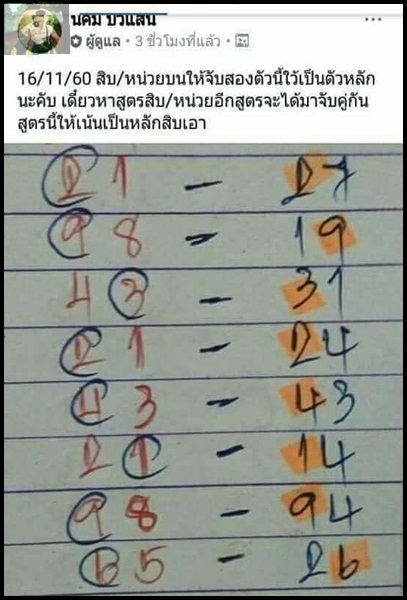 นิคม บัวแสน
ผู้ดูแล • 3 ชั่วโมงที่แล้ว •
16/11/60 สิบ/หน่วยบนให้จับสองตัวนี้ใว้เป็นตัวหลัก
นะคับ เดี๋ยวหาสูตรสิบ/หน่วยอีกสูตรจะได้มาจับคู่กัน
สูตรนี้ให้เน้นเป็นหลักสิบเอา
21 - 27
98 - 19
43 - 31
21 - 24
43 - 43
21 - 14
98 - 94
65 - 26